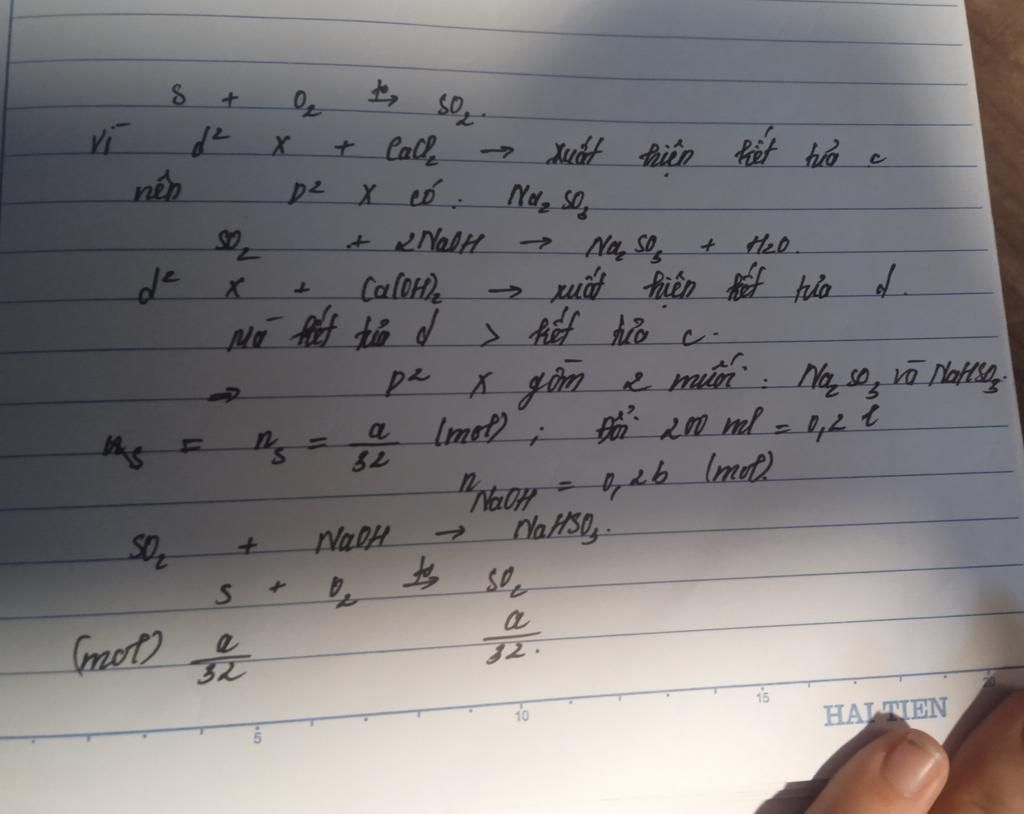 S + O₂ t° → SO₂.
Vì d² X + CaCl₂ → xuất hiện kết tủa c
nên D² X có : Na₂SO₃
SO₂ + 2NaOH → Na₂SO₃ + H₂O.
d² X + Ca(OH)₂ → xuất hiện kết tủa d.
Mà kết tủa d > kết tủa c.
→ D² X gồm 2 muối : Na₂SO₃ và NaHSO₃.
n_S = n_S = a/32 (mol) ; Đổi 200 ml = 0,2 l
n_NaOH = 0,2b (mol)
SO₂ + NaOH → NaHSO₃.
S + O₂ t° → SO₂
(mol) a/32 a/32.
5 10 15 20
HAI TIEN